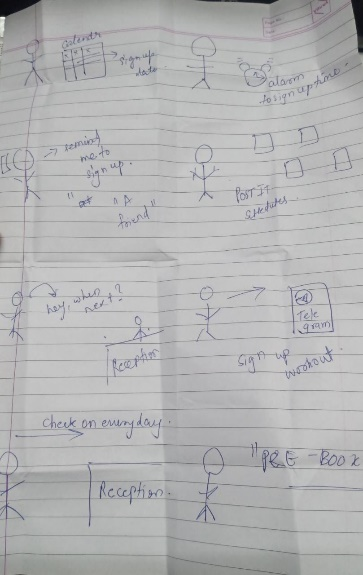 calendr
sign up
date
alarm
to sign up time.
remind
me to
sign up.
" "A
friend"
POST IT
hey, when
next?
Reception
Tele
gram
sign up
workout.
check on everyday.
Reception.
"PRE-BOOK